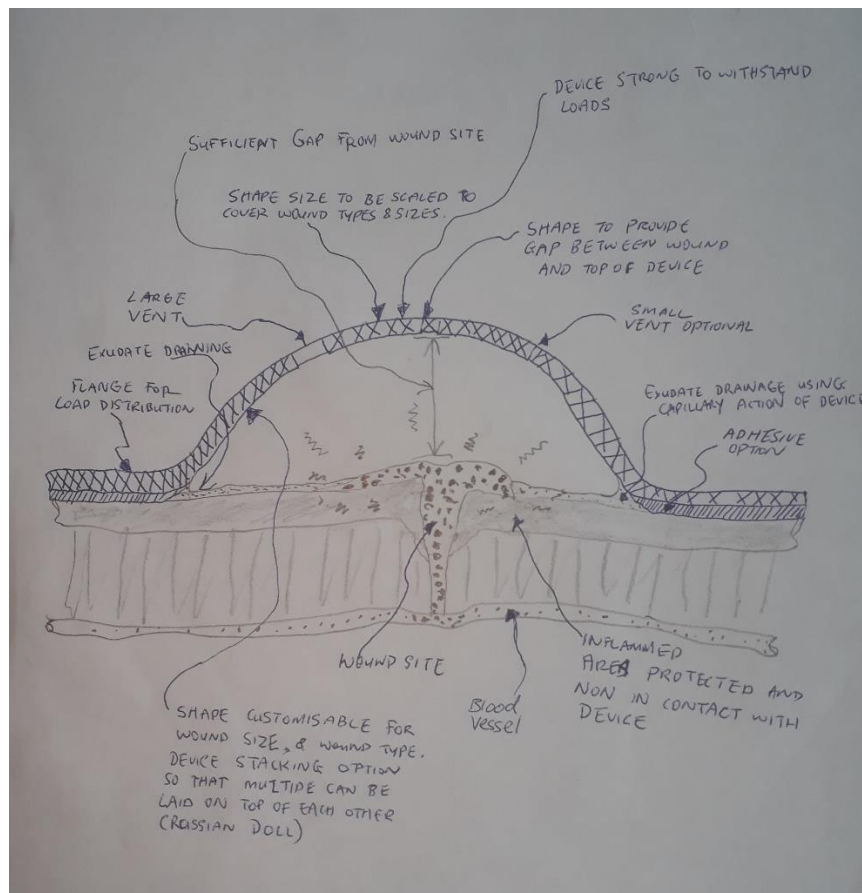 DEVICE STRONG TO WITHSTAND
LOADS
SUFFICIENT GAP FROM WOUND SITE
SHAPE SIZE TO BE SCALED TO
COVER WOUND TYPES & SIZES.
SHAPE TO PROVIDE
GAP BETWEEN WOUND
AND TOP OF DEVICE
LARGE
VENT
SMALL
VENT OPTIONAL
EXUDATE DRAINING
FLANGE FOR
LOAD DISTRIBUTION
EXUDATE DRAINAGE USING
CAPILLARY ACTION OF DEVICE
ADHESIVE
OPTION
WOUND SITE
Blood
Vessel
INFLAMMED
AREA PROTECTED AND
NON IN CONTACT WITH
DEVICE
SHAPE CUSTOMISABLE FOR
WOUND SIZE, & WOUND TYPE.
DEVICE STACKING OPTION
SO THAT MULTIPLE CAN BE
LAID ON TOP OF EACH OTHER
(RUSSIAN DOLL)